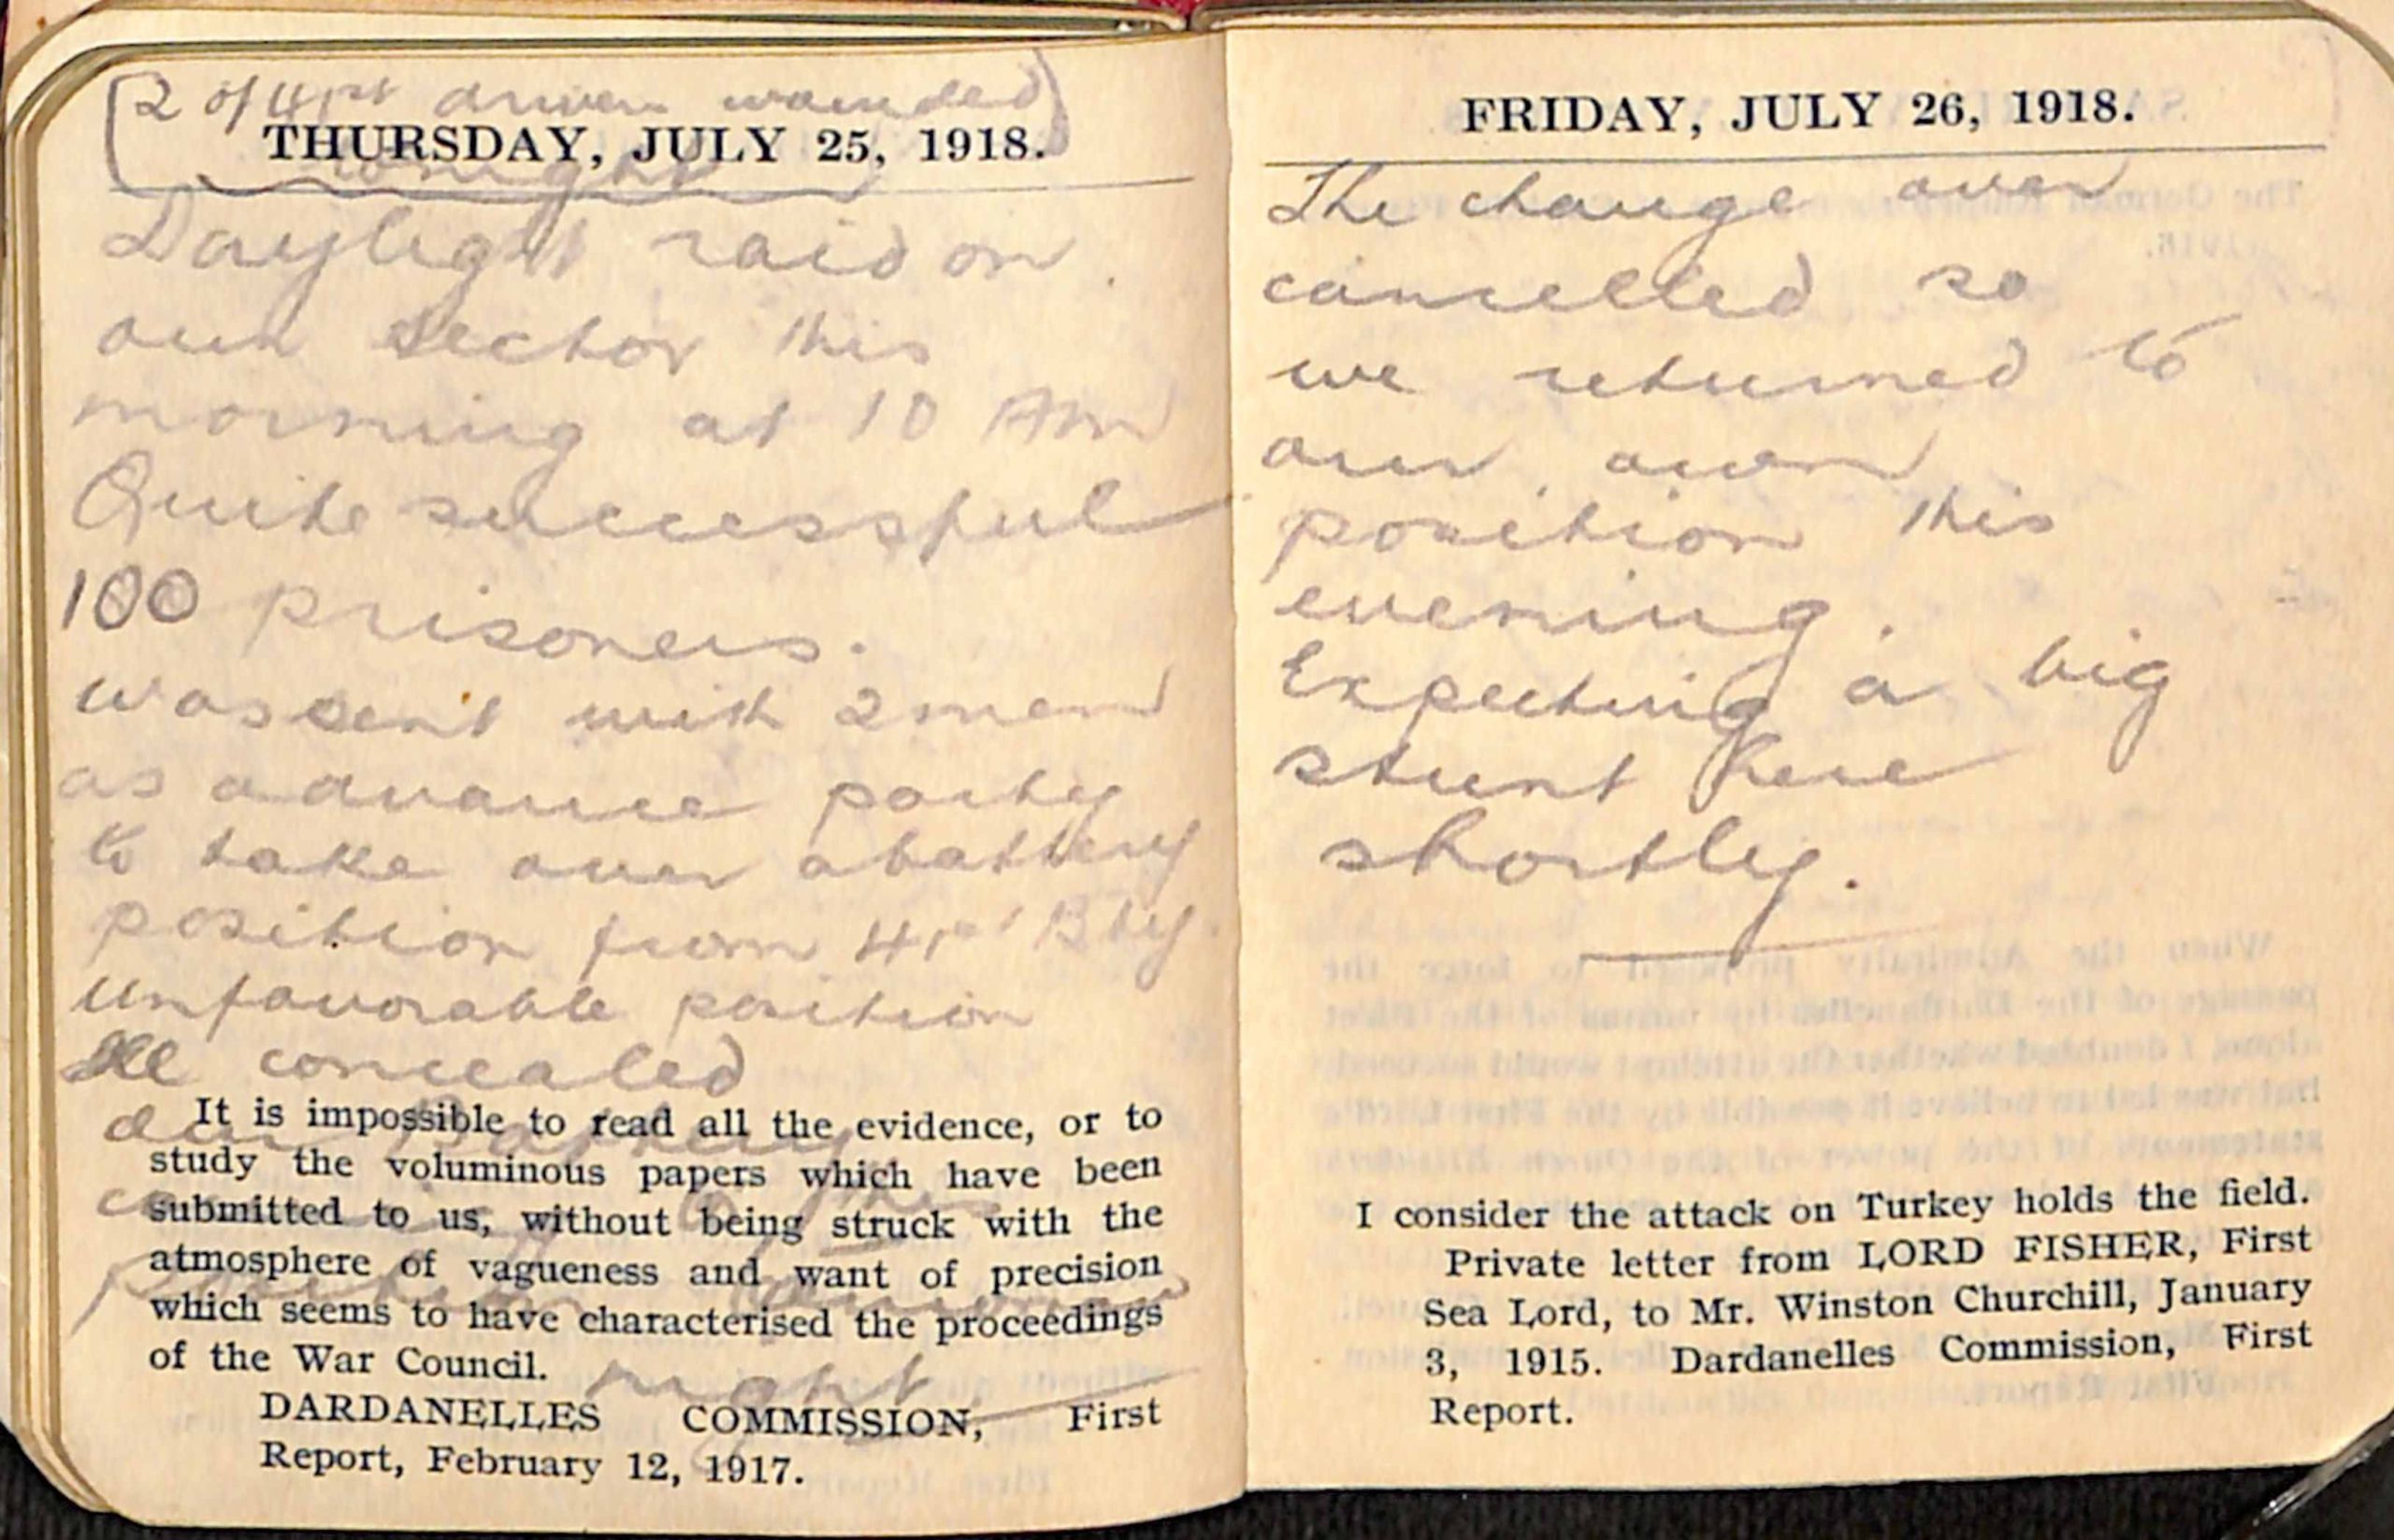 2 of 41st drivers wounded
THURSDAY, JULY 25, 1918.
tonight
Daylight raid on
our sector this
morning at 10 AM
Quite successful
100 prisoners.
was sent with 2 men
as advance party
to take over a battery
position from 41st Bty.
unfavorable position
ill concealed
our Battery
coming to the
position tomorrow
night
It is impossible to read all the evidence, or to
study the voluminous papers which have been
submitted to us, without being struck with the
atmosphere of vagueness and want of precision
which seems to have characterised the proceedings
of the War Council.
DARDANELLES COMMISSION, First
Report, February 12, 1917.
FRIDAY, JULY 26, 1918.
The change over
cancelled so
we returned to
our own
position this
evening.
Expecting a big
stunt here
shortly.
I consider the attack on Turkey holds the field.
Private letter from LORD FISHER, First
Sea Lord, to Mr. Winston Churchill, January
3, 1915. Dardanelles Commission, First
Report.